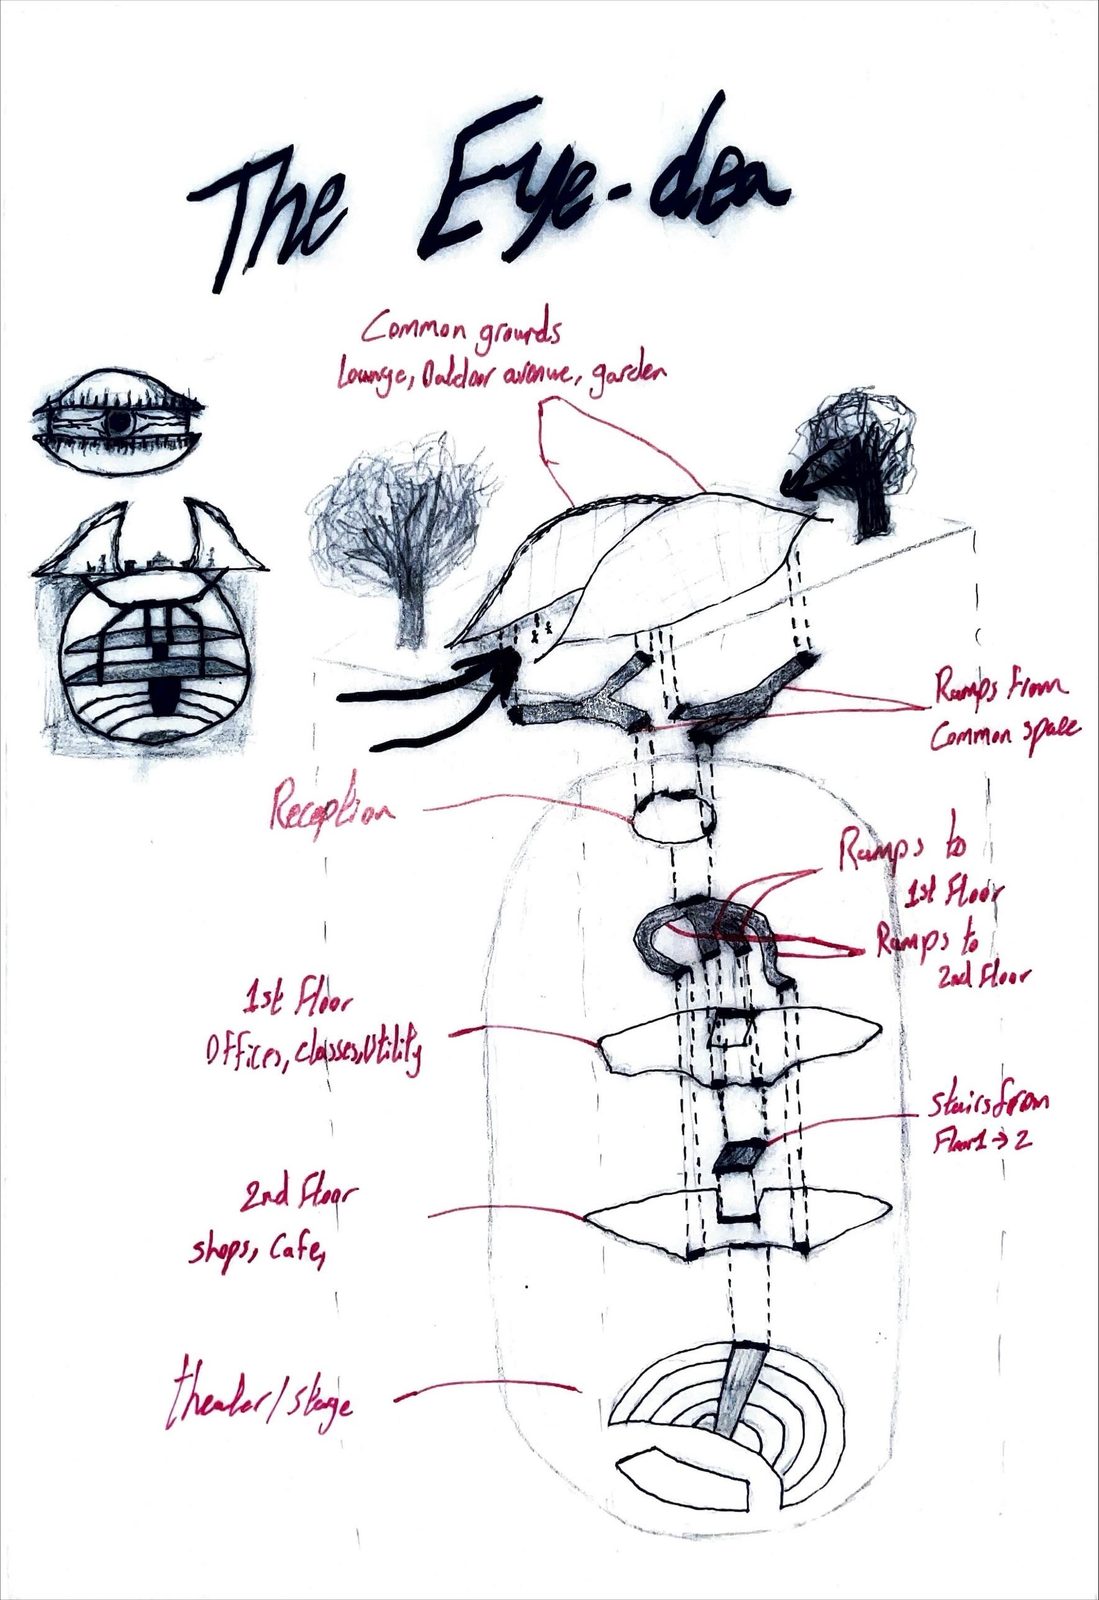 The Eye-dea
Common grounds
Lounge, Outdoor avenue, garden
Ramps from
Common space
Reception
Ramps to
1st Floor
Ramps to
2nd Floor
1st Floor
Offices, classes, Utility
Stairs from
Floor 1 → 2
2nd Floor
shops, Cafe,
theater/stage